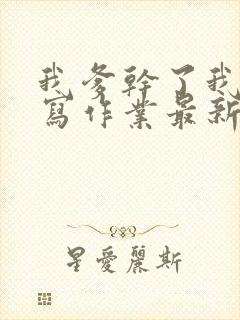 我爹幹了我
寫作業最新
星愛麗斯